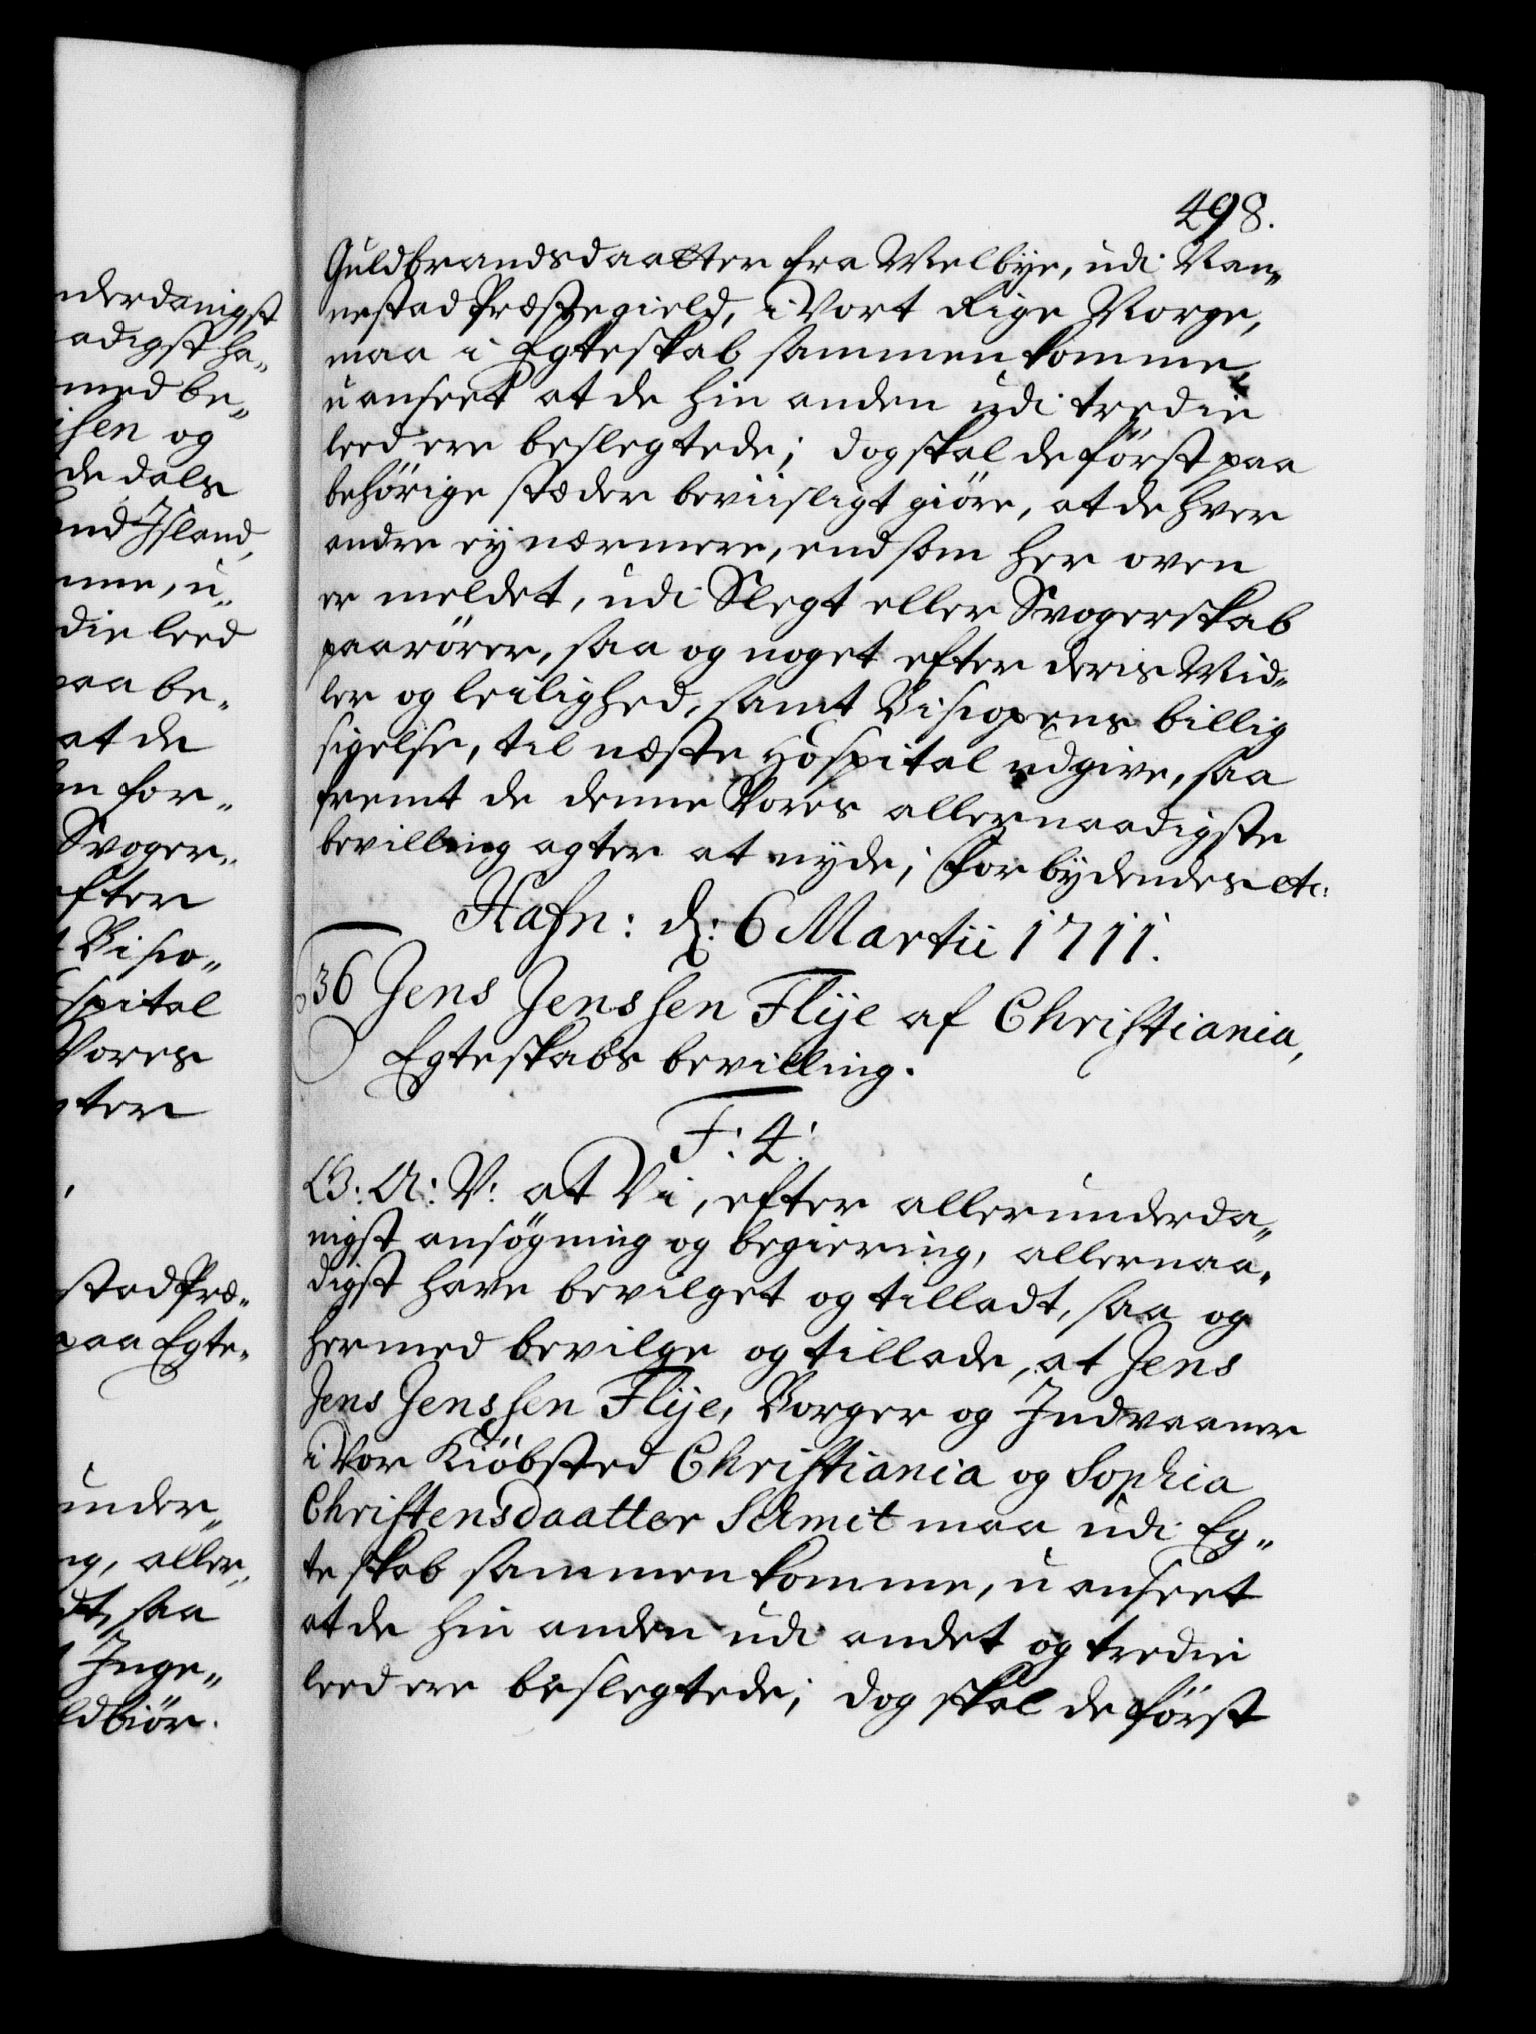 nderdanigst
adigst ha„
med be„
sen og
de dals
und Island,
mme, u„
die leed
paa be„
at de
en for„
Svoger„
efter
t Bisco„
spital
Vores
gter
stad Præ„
paa Egte„
under„
ng, aller„
dt, saa
Inge„
ldbiör.
498.
Guldbrandsdaatter fra Melbye, udi Nan„
nestad Præstegield, i Vort Rige Norge,
maa i Egteskab sammenkomme,
uanseet at de hin anden udi tredie
leed ere beslegtede; dog skal de först paa
behörige stæder beviisligt giöre, at de hver
andre ey nærmere, end som her oven
er meldet, udi Slegt eller Svogerskab
paarörer, saa og noget efter deris Mid„
ler og leilighed, samt Biscopens billig
sigelse, til næste Hospital udgive, saa
fremt de denne Vores allernaadigste
bevilling agter at nyde; Forbydendes etc:
Hafn: d: 6 Martii 1711.
36 Jens Jenssen Flije af Christiania,
Egteskabs bevilling.
F: 4:
G: A: V: at Vi, efter allerunderda„
nigst ansögning og begiering, allernaa„
digst have bevilget og tilladt, saa og
hermed bevilge og tillade, at Jens
Jens Jenssen Flije, Borger og Indvaaner
i Vor Kiöbsted Christiania og Sophia
Christensdaatter Schmit maa udi Eg„
teskab sammenkomme, uanseet
at de hin anden udi andet og tredie
leed ere beslegtede; dog skal de först